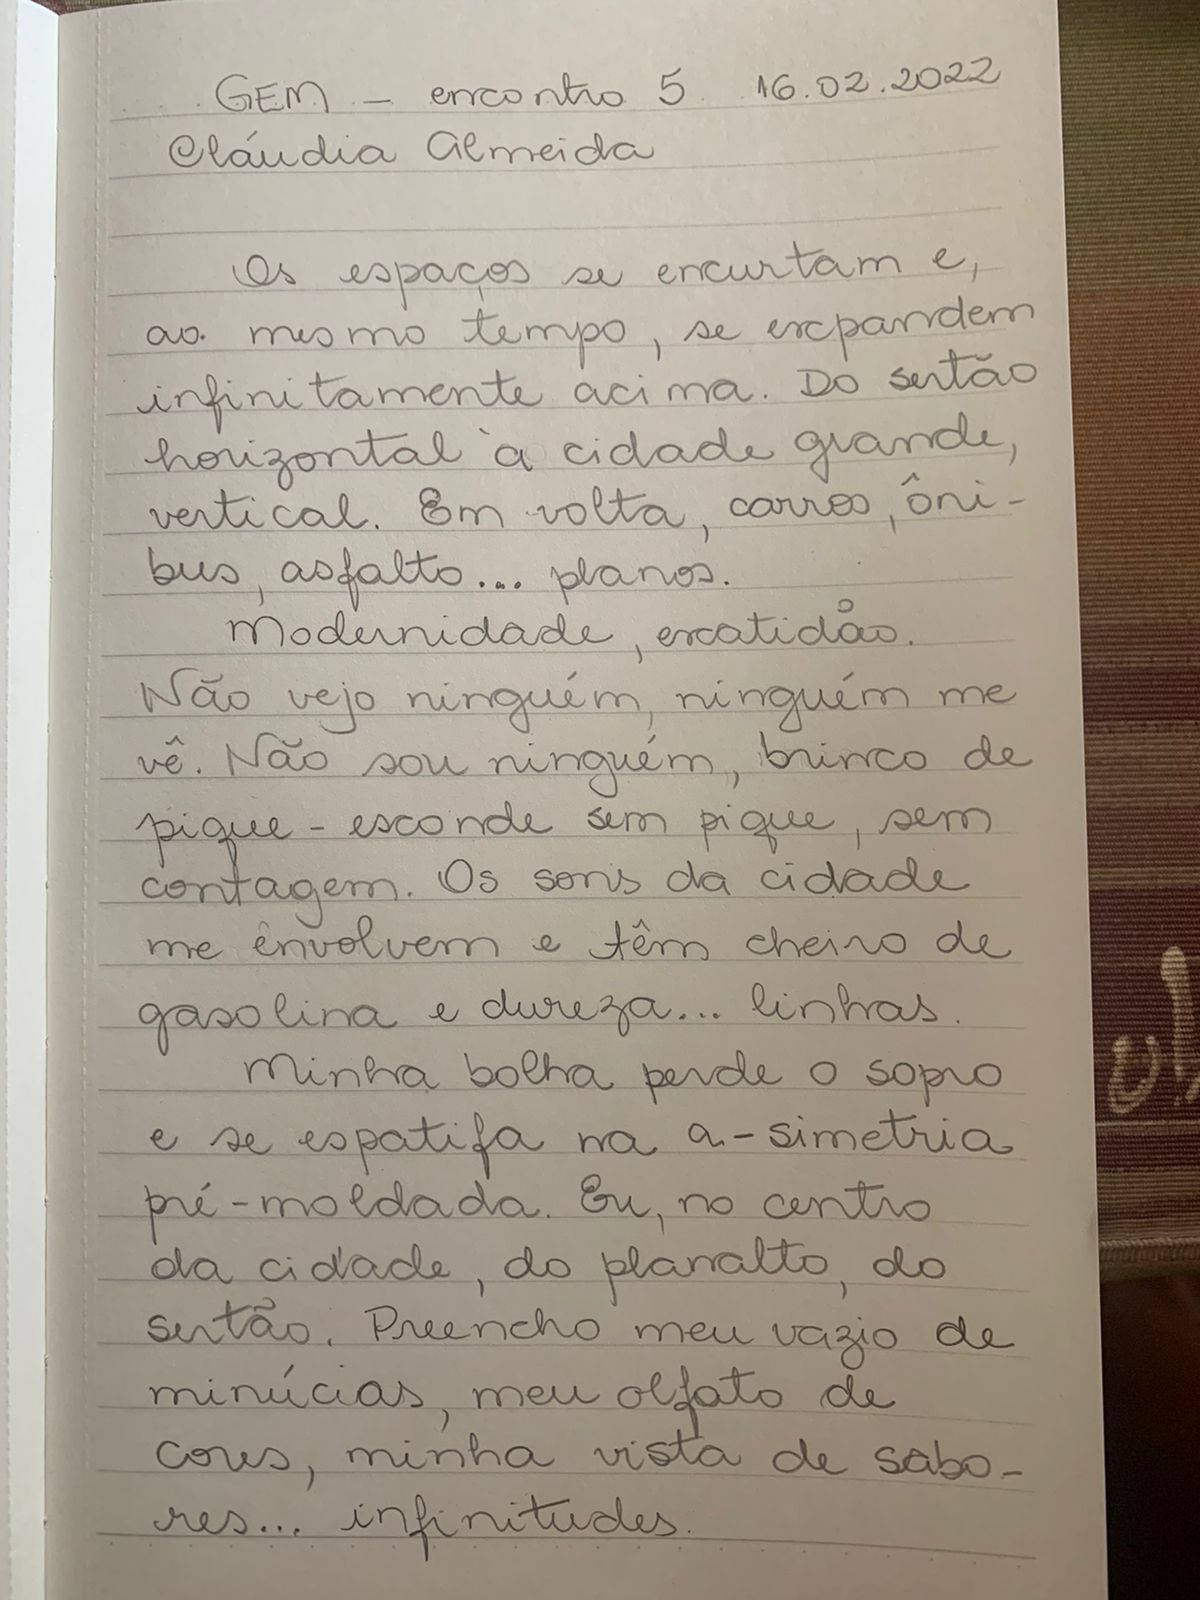 GEM - encontro 5 16.02.2022
Cláudia Almeida
Os espaços se encurtam e,
ao mesmo tempo, se expandem
infinitamente acima. Do sertão
horizontal à cidade grande,
vertical. Em volta, carros, ôni-
bus, asfalto... planos.
Modernidade, exatidão.
Não vejo ninguém, ninguém me
vê. Não sou ninguém, brinco de
pique-esconde sem pique, sem
contagem. Os sons da cidade
me envolvem e têm cheiro de
gasolina e dureza... linhas.
Minha bolha perde o sopro
e se espatifa na a-simetria
pré-moldada. Eu, no centro
da cidade, do planalto, do
sertão. Preencho meu vazio de
minúcias, meu olfato de
cores, minha vista de sabo-
res... infinitudes.